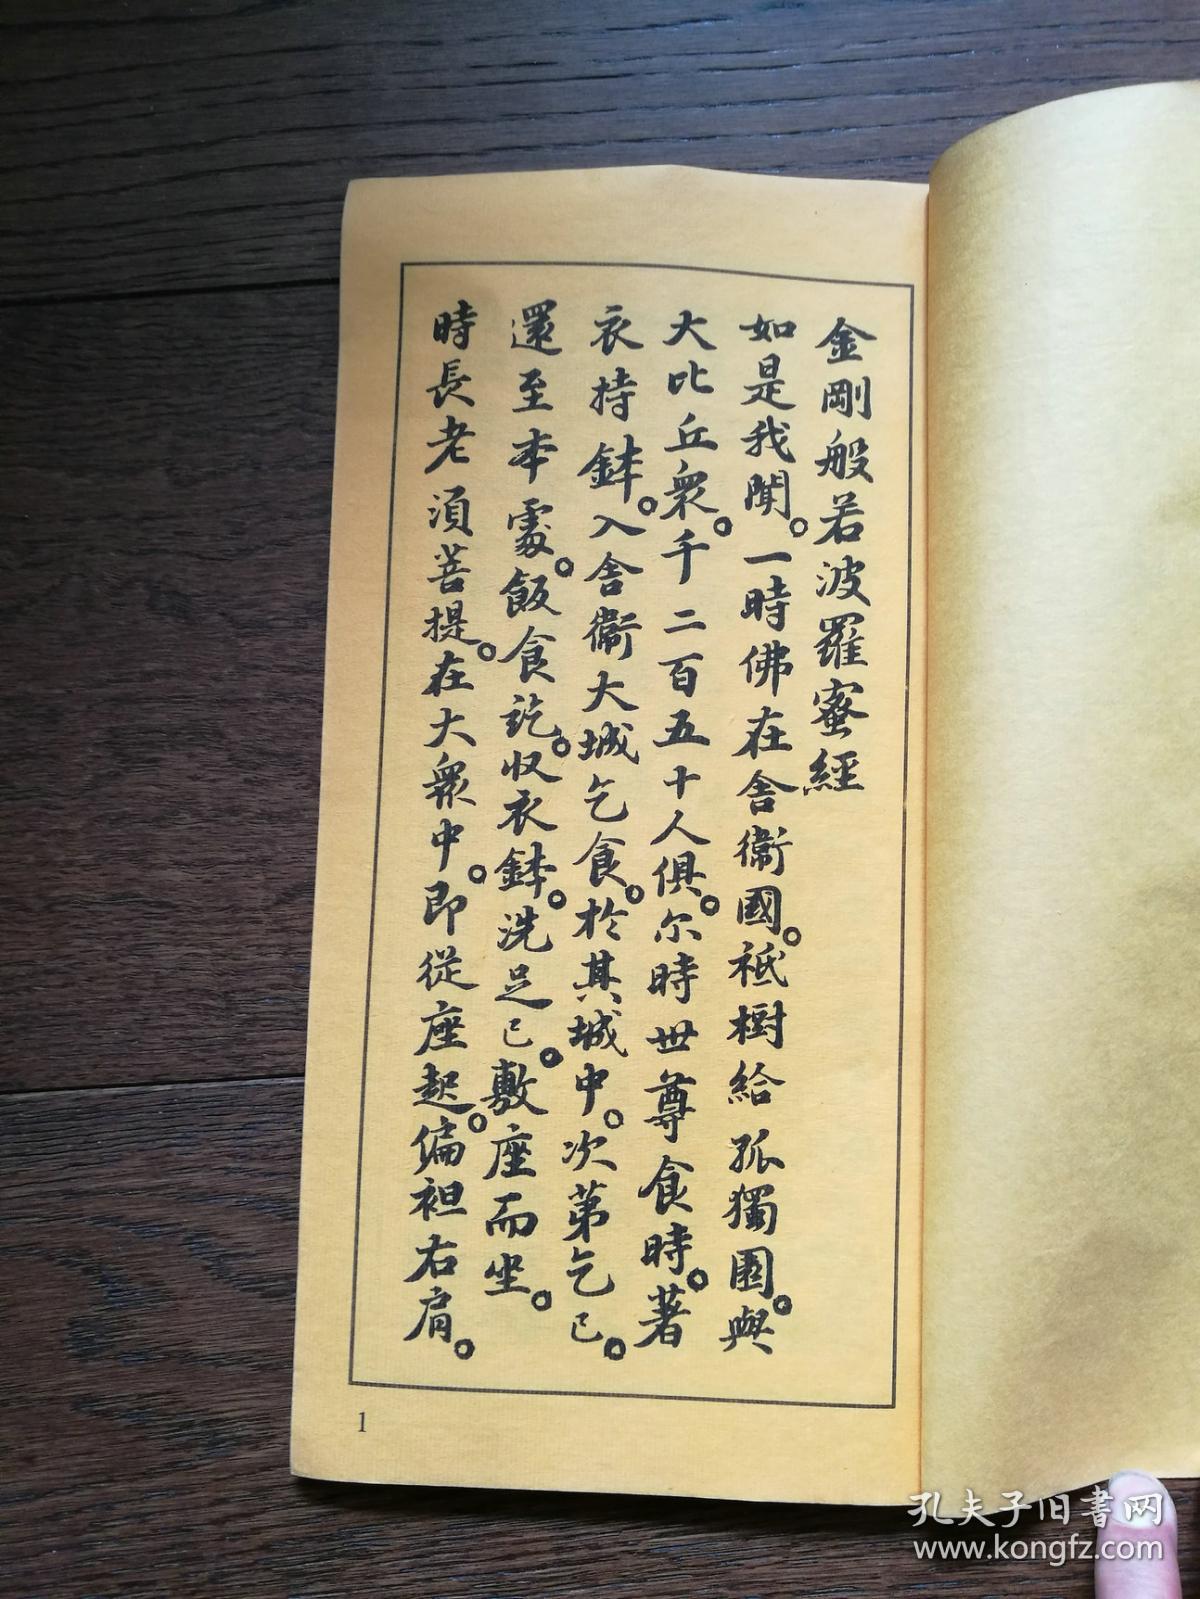 金剛般若波羅蜜經
如是我聞。一時佛在舍衞國。祗樹給孤獨園。與
大比丘衆。千二百五十人俱。尒時世尊食時。著
衣持鉢。入舍衞大城乞食。於其城中。次第乞已。
還至本處。飯食訖。収衣鉢。洗足已。敷座而坐。
時長老須菩提。在大衆中。即從座起。偏袒右肩。
1
孔夫子旧书网
www.kongfz.com